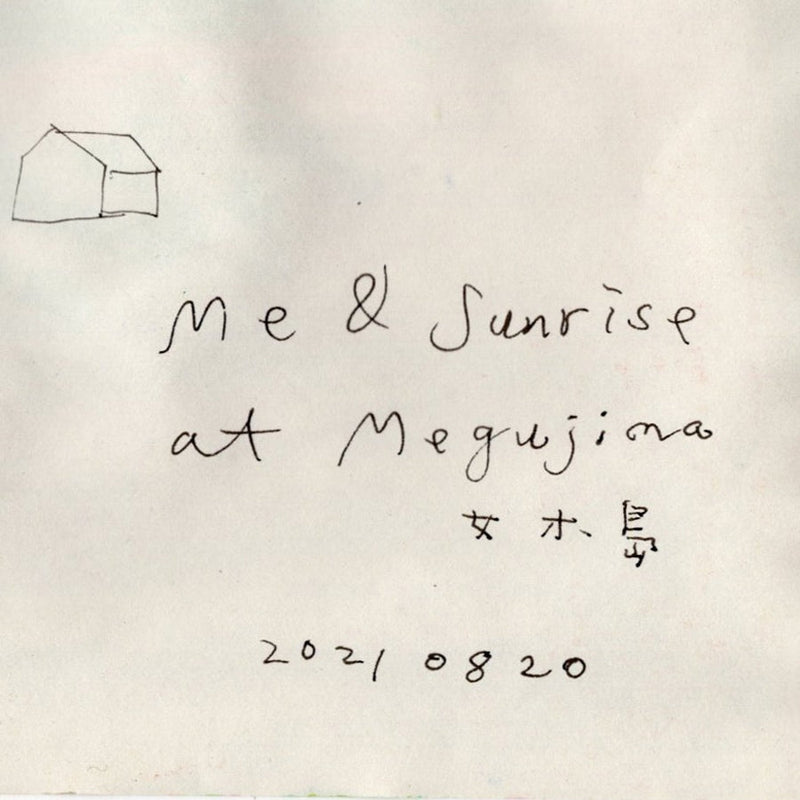 Me & Sunrise
at Megujima
女木島
2021 08 20